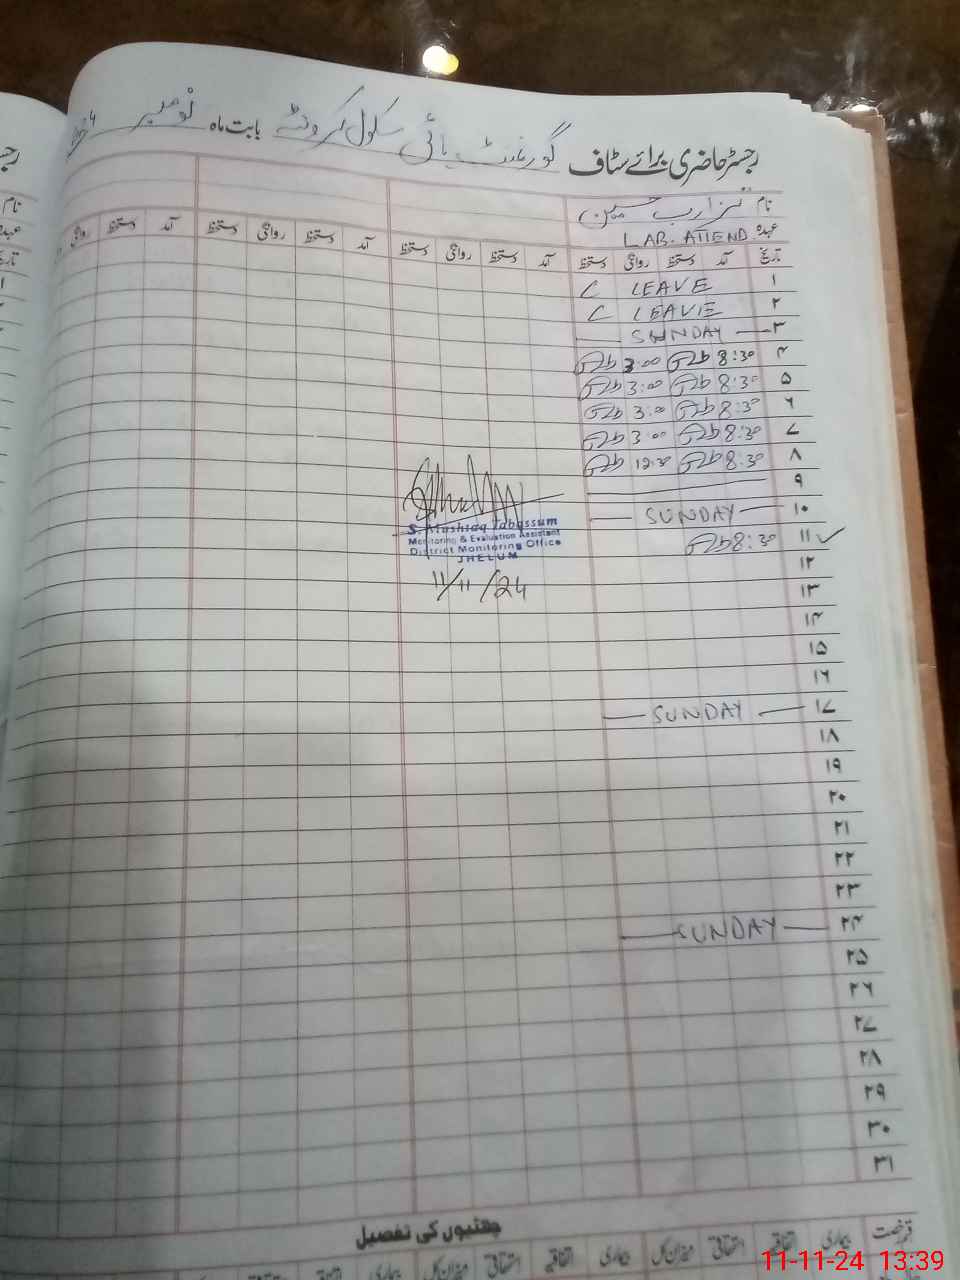 رجسٹر حاضری برائے سٹاف گورنمنٹ ہائی سکول بابت ماہ نومبر 2024
نام حسین
عہدہ LAB. ATTEND.
تاریخ آمد دستخط روانگی دستخط آمد دستخط روانگی دستخط آمد دستخط روانگی دستخط آمد دستخط روانگی
۱ C LEAVE
۲ C LEAVE
۳ SUNDAY
۴ 8:30 3:00
۵ 8:30 3:00
۶ 8:30 3:00
۷ 8:30 3:00
۸ 8:30 12:30
۹
۱۰ SUNDAY
۱۱ ✓ 8:30
S. Mushtaq Tabassum
Monitoring & Evaluation Assistant
District Monitoring Office
JHELUM
11/11/24
۱۲
۱۳
۱۴
۱۵
۱۶
۱۷ SUNDAY
۱۸
۱۹
۲۰
۲۱
۲۲
۲۳
۲۴ SUNDAY
۲۵
۲۶
۲۷
۲۸
۲۹
۳۰
۳۱
چھٹیوں کی تفصیل
قسم رخصت بیماری اتفاقیہ استحقاقی میزان کل بیماری اتفاقیہ استحقاقی میزان کل بیماری اتفاقیہ
11-11-24 13:39